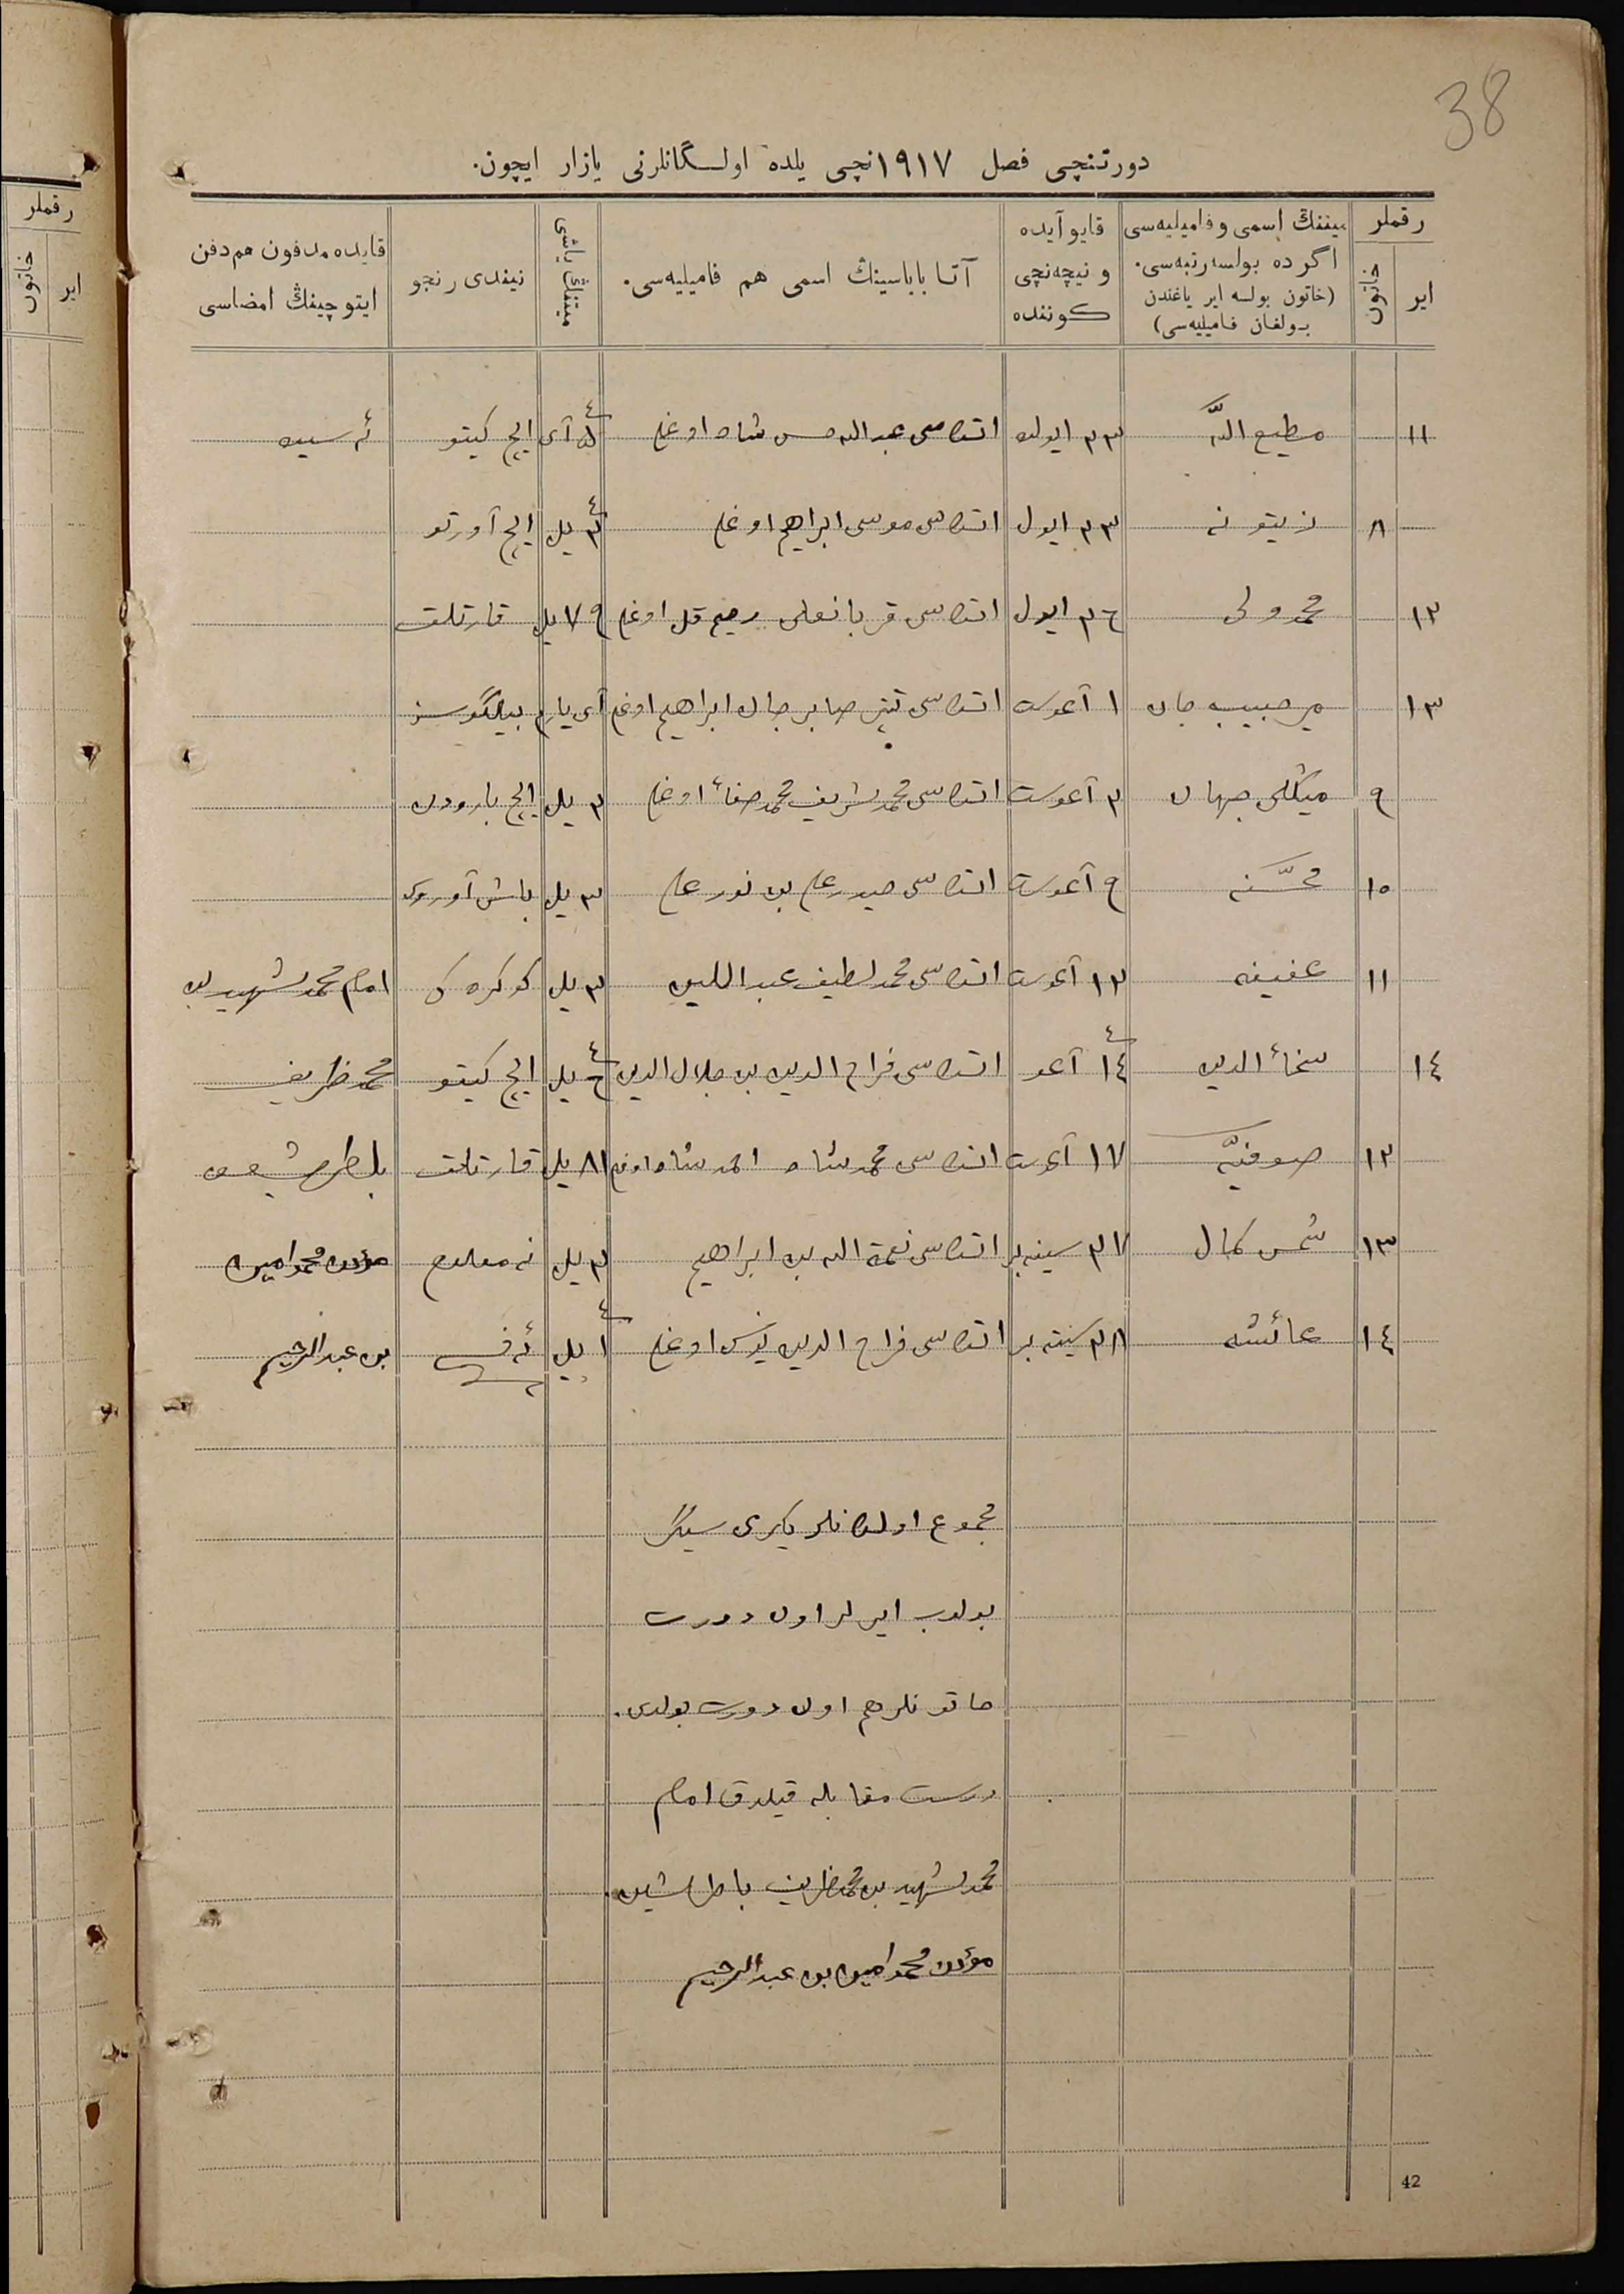 38
دورتنچی فصل ۱۹۱۷نچی یلده اولسگانلرنی یازار ایچون.
رقملر
ایر
خاتون
میتنڭ اسمی و فامیلیه‌سی اگر ده بولسه رتبه‌سی. (خاتون بولسه ایر یاغندن بولغان فامیلیه‌سی)
قایو آیده و نیچه‌نچی کوننده
آتا باباسینڭ اسمی هم فامیلیه‌سی.
میتنڭ یاشی
نیندی رنجو
قایده مدفون هم دفن ایتوچینڭ امضاسی
رقملر
ایر
خاتون
١١ مطیع اللّه ٢٣ ایول اتاسی عبدالله شاه اوغلی آی ایچ کیتو
٨ زیتونه ٢٣ ایول اتاسی موسی ابراهیم اوغلی ٣ یل ایچ آورتو
١٢ محمد ولی ٢٦ ایول اتاسی قربانعلی اوغلی ٧٩ یل قارتلق
١٣ میر حبیب جان ١ آغوست اتاسی صابر جان ابراهیم اوغلی یارم آی بیلگوسز
٩ جهان ٢ آغوست اتاسی محمد شریف محمد صفا اوغلی ٢ یل ایچ بارودن
١٠ محسّنه ٩ آغوست اتاسی حیدر علی بن نور علی ٣ یل باش آوروی
١١ عفیفه ١٢ آغوست اتاسی محمد لطیف ٢ یل امام محمد شهید بن
١٤ سخاء الدین ١٤ آغو اتاسی فراح الدین بن جلال الدین یل ایچ کیتو محمد ظریف
١٢ صوفیّه ١٧ آغوست اتاسی محمد شاه احمد شاه اوغلی ٨١ یل قارتلق
١٣ شمس کمال ٢٧ سینتبر اتاسی نعمة الله بن ابراهیم ٢ یل نه معلوم مؤذن محمد امین
١٤ عائشه ٢٨ سینتبر اتاسی فراح الدین یونس اوغلی ١ یل بن عبد الرحیم
مجموع اولگانلر یکرمی سیگز
بولوب ایرلر اون دورت
خاتونلر هم اون دورت بولدی.
درست مقابله قیلدق امام
محمد شهید بن محمد ظریف
مؤذن محمد امین بن عبد الرحیم
42